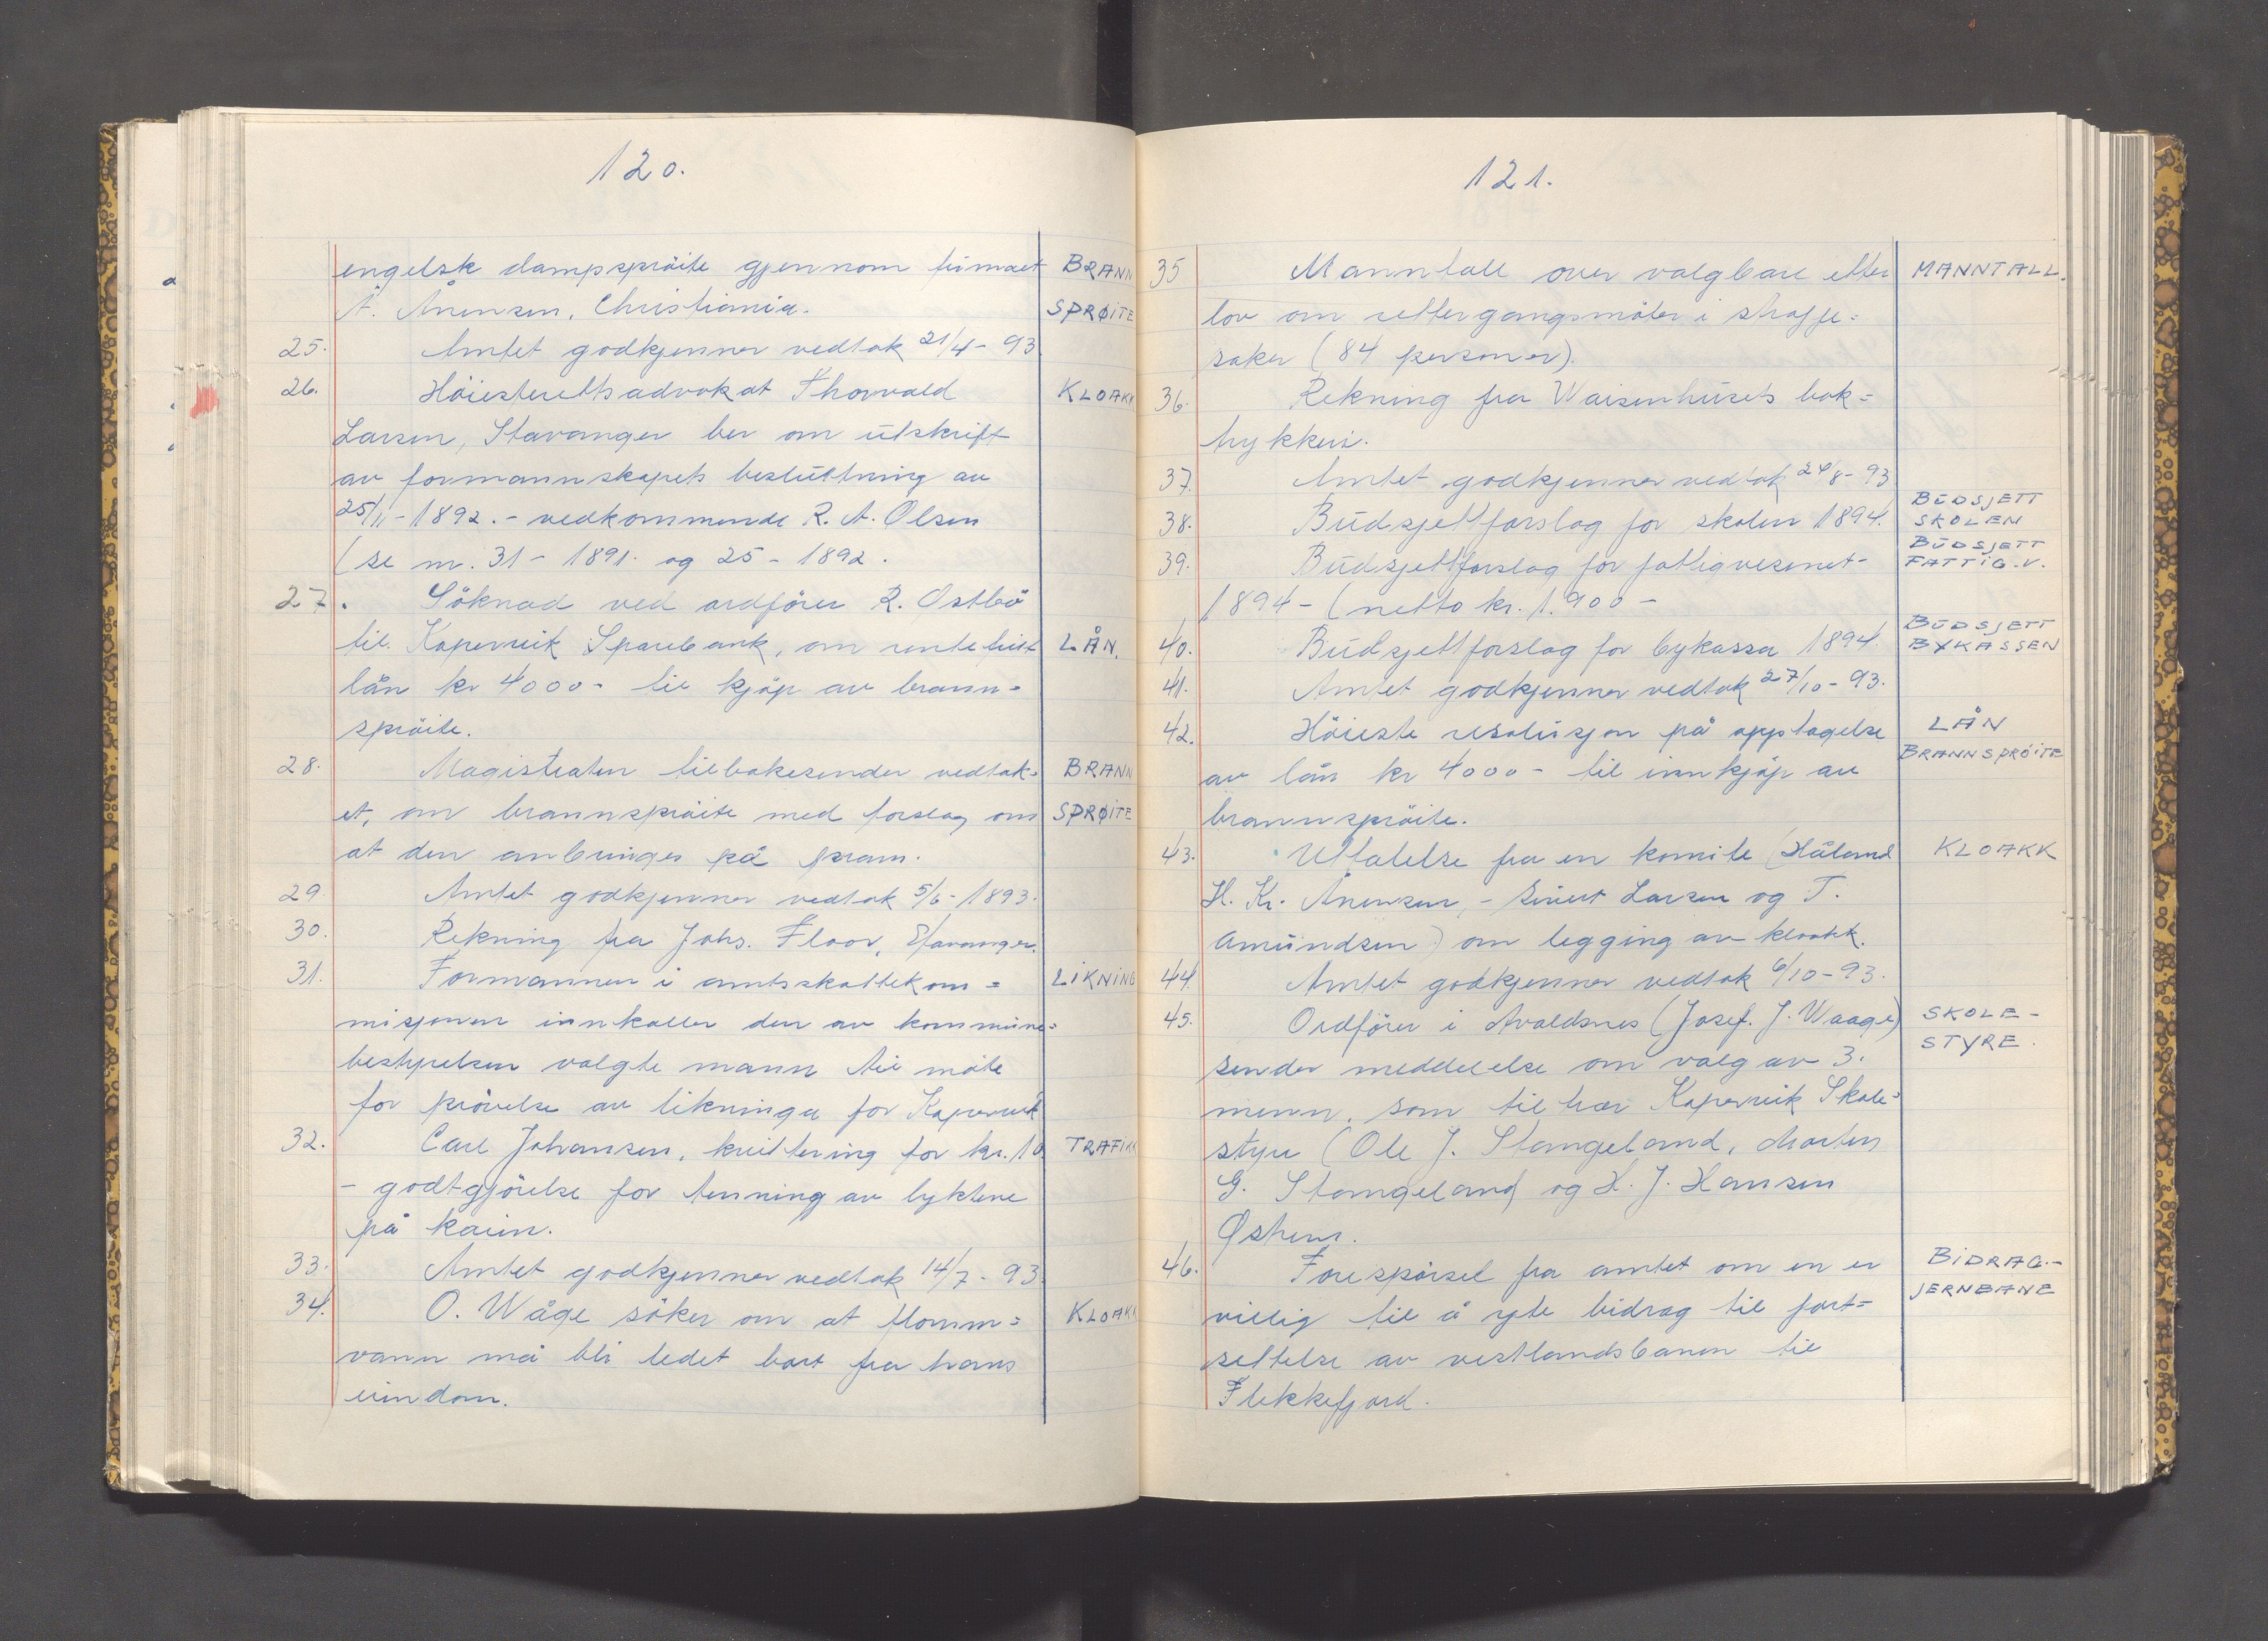 120.
engelsk dampsprøite gjennom firmaet BRANN
A. Ånensen, Christiania. SPRØITE
25. Amtet godkjenner vedtak 21/4-93
26. Höiesterettsadvokat Thorvald KLOAKK
Larsen, Stavanger ber om utskrift
av formannskapets besluttning av
25/11-1892.- vedkommende R. A. Olsen
(se nr. 31 - 1891. og 25 - 1892.
27. Söknad ved ordförer R. Ostbö
til Kopervik Sparebank, om rentefritt LÅN.
lån kr 4000- til kjöp av brann=
spröite.
28. Magistraten tilbakesender vedtak= BRANN
et, om brannspröite med forslag om SPRØITE
at den anbringes på pram.
29 Amtet godkjenner vedtak 5/6-1893.
30. Rekning fra Johs. Floor, Stavanger.
31. Formannen i amtsskattekom= LIKNING
misjonen innkaller den av kommune=
bestyrelsen valgte mann til möte
for prövelse av likninga for Kopervik
32. Carl Johansen, kvittering for kr. 10 TRAFIKK
- godtgjörelse for tenning av lyktene
på kaien.
33. Amtet godkjenner vedtak 14/7-93.
34. O. Wåge söker om at flomm= KLOAKK
vann må bli ledet bort fra hans
eiendom.
121.
35 Manntall over valgbare etter MANNTALL.
lov om rettergangsmöter i straffe=
saker (84 personer).
36. Rekning fra Waisenhusets bok=
trykkeri.
37. Amtet godkjenner vedtak 24/8-93
BUDSJETT
38. Budsjettforslag for skolen 1894. SKOLEN
BUDSJETT
39. Budsjettforslag for fattigvesenet- FATTIG.V.
1894- (netto kr. 1.900-
BUDSJETT
40. Budsjettforslag for bykassa 1894. BYKASSEN
41. Amtet godkjenner vedtak 27/10-93.
42. Höieste resolusjon på opptagelse LÅN
av lån kr 4000- til innkjöp av BRANNSPRÖITE
brannspröite.
43. Uttalelse fra en komite (Håland KLOAKK
H. Kr. Ånensen, - Sivert Larsen og T.
Amundsen) om legging av kloakk.
44. Amtet godkjenner vedtak 6/10-93.
45. Ordförer i Avaldsnes (Josef. J. Waage) SKOLE-
sender meddelelse om valg av 3. STYRE.
menn, som tilhör Kopervik Skole=
styre (Ole J. Stangeland, Morten
G. Stangeland og H. J. Hansen
Østrem.
46. Forespörsel fra amtet om en er BIDRAG.-
villig til å yte bidrag til fort= JERNBANE
settelse av vestlandsbanen til
Flekkefjord.